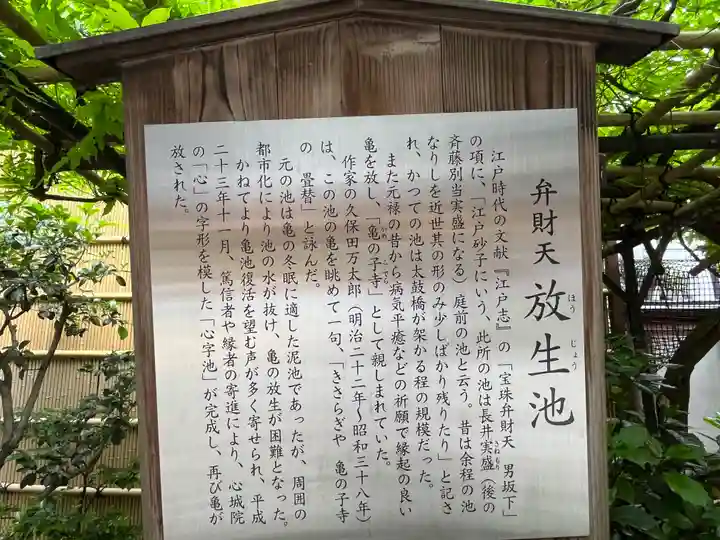 弁財天 放生池
ほう じょう
江戸時代の文献『江戸志』の「宝珠弁財天 男坂下」
の項に、「江戸砂子にいう、此所の池は長井実盛（後の
さねもり
斉藤別当実盛になる）庭前の池と云う。昔は余程の池
なりしを近世其の形のみ少しばかり残りたり」と記さ
れ、かつての池は太鼓橋が架かる程の規模だった。
また元禄の昔から病気平癒などの祈願で縁起の良い
亀を放し、「亀の子寺」として親しまれていた。
作家の久保田万太郎（明治二十二年～昭和三十八年）
は、この池の亀を眺めて一句、「きさらぎや 亀の子寺
の 畳替」と詠んだ。
元の池は亀の冬眠に適した泥池であったが、周囲の
都市化により池の水が抜け、亀の放生が困難となった。
かねてより亀池復活を望む声が多く寄せられ、平成
二十三年十一月、篤信者や縁者の寄進により、心城院
の「心」の字形を模した「心字池」が完成し、再び亀が
放された。